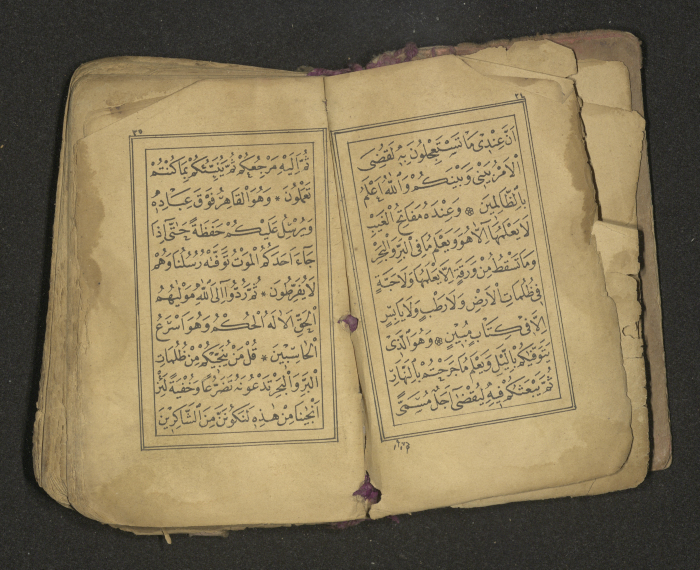 اَنَّ عِنْدِى مَا تَسْتَعْجِلُونَ بِهِ لَقُضِىَ
الْاَمْرُ بَيْنِى وَبَيْنَكُمْ وَاللّٰهُ اَعْلَمُ
بِالظَّالِمِينَ ۞ وَعِنْدَهُ مَفَاتِحُ الْغَيْبِ
لَا يَعْلَمُهَا اِلَّا هُوَ وَيَعْلَمُ مَا فِى الْبَرِّ وَالْبَحْرِ
وَمَا تَسْقُطُ مِنْ وَرَقَةٍ اِلَّا يَعْلَمُهَا وَلَا حَبَّةٍ
فِى ظُلُمَاتِ الْاَرْضِ وَلَا رَطْبٍ وَلَا يَابِسٍ
اِلَّا فِى كِتَابٍ مُبِينٍ ۞ وَهُوَ الَّذِى
يَتَوَفّٰيكُمْ بِالَّيْلِ وَيَعْلَمُ مَا جَرَحْتُمْ بِالنَّهَارِ
ثُمَّ يَبْعَثُكُمْ فِيهِ لِيُقْضٰى اَجَلٌ مُسَمًّى
ثُمَّ اِلَيْهِ مَرْجِعُكُمْ ثُمَّ يُنَبِّئُكُمْ بِمَا كُنْتُمْ
تَعْمَلُونَ ۞ وَهُوَ الْقَاهِرُ فَوْقَ عِبَادِهِ
وَيُرْسِلُ عَلَيْكُمْ حَفَظَةً حَتّٰى اِذَا
جَاءَ اَحَدَكُمُ الْمَوْتُ تَوَفَّتْهُ رُسُلُنَا وَهُمْ
لَا يُفَرِّطُونَ ۞ ثُمَّ رُدُّوا اِلَى اللّٰهِ مَوْلٰيهُمُ
الْحَقِّ اَلَا لَهُ الْحُكْمُ وَهُوَ اَسْرَعُ
الْحَاسِبِينَ ۞ قُلْ مَنْ يُنَجِّيكُمْ مِنْ ظُلُمَاتِ
الْبَرِّ وَالْبَحْرِ تَدْعُونَهُ تَضَرُّعًا وَخُفْيَةً لَئِنْ
اَنْجَيْنَا مِنْ هٰذِهِ لَنَكُونَنَّ مِنَ الشَّاكِرِينَ